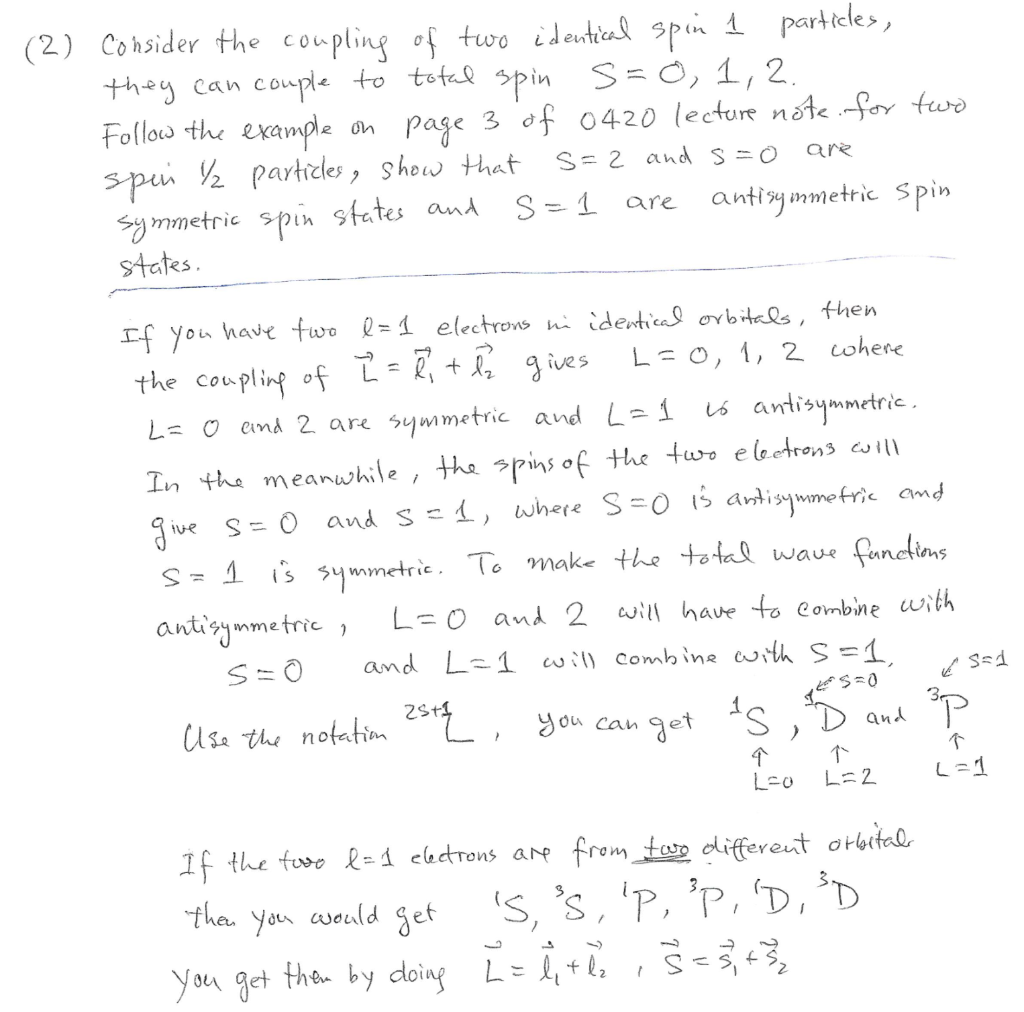 (2) Consider the coupling of two identical spin 1 particles,
they can couple to total spin S=0, 1, 2.
Follow the example on page 3 of 0420 lecture note for two
spin ½ particles, show that S=2 and S=0 are
symmetric spin states and S=1 are antisymmetric spin
states.
If you have two l=1 electrons in identical orbitals, then
the coupling of L⃗ = l⃗₁ + l⃗₂ gives L=0, 1, 2 where
L= 0 and 2 are symmetric and L=1 is antisymmetric.
In the meanwhile, the spins of the two electrons will
give S=0 and S=1, where S=0 is antisymmetric and
S=1 is symmetric. To make the total wave functions
antisymmetric, L=0 and 2 will have to combine with
S=0 and L=1 will combine with S=1,
↙ S=0 ↙ S=1
Use the notation ²ˢ⁺¹L, you can get ¹S, ¹D and ³P
↑ ↑ ↑
L=0 L=2 L=1
If the two l=1 electrons are from two different orbital
then you would get ¹S, ³S, ¹P, ³P, ¹D, ³D
you get them by doing L⃗ = l⃗₁ + l⃗₂, S⃗ = s⃗₁ + s⃗₂